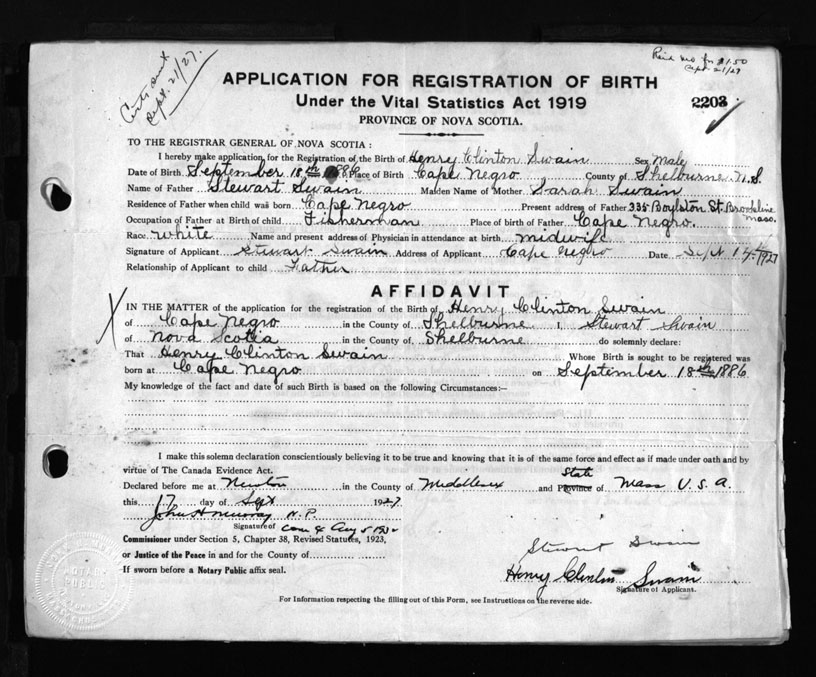 Certs sent
Sept. 21/27.
Paid for $1.50
Sept. 21/27
APPLICATION FOR REGISTRATION OF BIRTH
Under the Vital Statistics Act 1919
2203
PROVINCE OF NOVA SCOTIA.
TO THE REGISTRAR GENERAL OF NOVA SCOTIA :
I hereby make application for the Registration of the Birth of Henry Clinton Swain Sex Male
Date of Birth September 18th 1886 Place of Birth Cape Negro County of Shelburne N.S
Name of Father Stewart Swain Maiden Name of Mother Sarah Swain
Residence of Father when child was born Cape Negro Present address of Father 335 Boylston St. Brookline Mass.
Occupation of Father at Birth of child Fisherman Place of birth of Father Cape Negro.
Race White Name and present address of Physician in attendance at birth midwife
Signature of Applicant Stewart Swain Address of Applicant Cape Negro Date Sept 17th 1927
Relationship of Applicant to child Father
AFFIDAVIT
IN THE MATTER of the application for the registration of the Birth of Henry Clinton Swain
of Cape Negro in the County of Shelburne I, Stewart Swain
of Nova Scotia in the County of Shelburne do solemnly declare:
That Henry Clinton Swain Whose Birth is sought to be registered was
born at Cape Negro on September 18th 1886
My knowledge of the fact and date of such Birth is based on the following Circumstances:—
I make this solemn declaration conscientiously believing it to be true and knowing that it is of the same force and effect as if made under oath and by
virtue of The Canada Evidence Act.
State
Declared before me at Newton in the County of Middlesex and Province of Mass U.S.A.
this 17 day of Sept 1927
John H Murray N.P.
Signature of Com Ex Aug 5 1932
Commissioner under Section 5, Chapter 38, Revised Statutes, 1923,
or Justice of the Peace in and for the County of
If sworn before a Notary Public affix seal.
Stewart Swain
Henry Clinton Swain
Signature of Applicant.
For Information respecting the filling out of this Form, see Instructions on the reverse side.